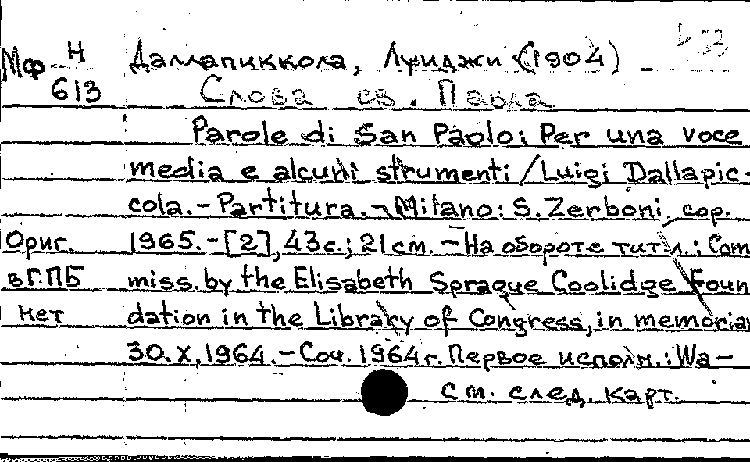 Мф Н/613 Даллапиккола, Луиджи (1904)
Слова св. Павла
Parole di San Paolo: Per una voce
media e alcuni strumenti / Luigi Dallapic-
cola. - Partitura. - Milano: S. Zerboni, cop.
Ориг. 1965. - [2], 43 с.; 21 см. - На обороте тит. л.: Com
в ГПБ miss. by the Elisabeth Sprague Coolidge Foun
нет dation in the Library of Congress, in memoriam
30.X.1964. - Соч. 1964 г. Первое исполн.: Wa-
см. след. карт.